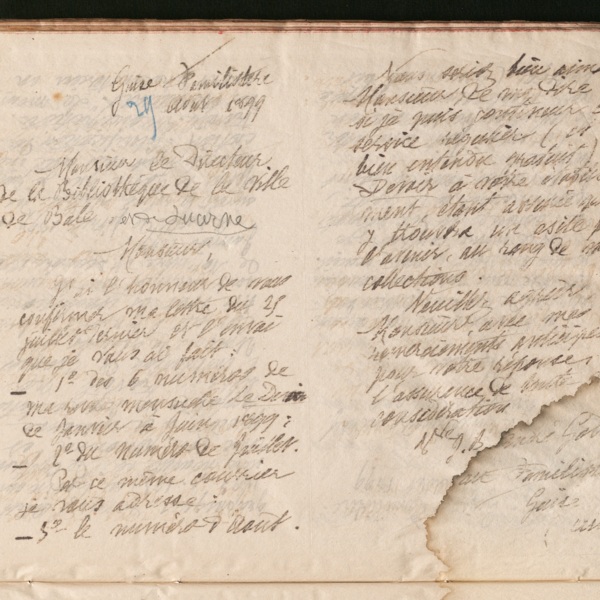 Guise Familistère
29 Août 1899
Monsieur le Directeur
de la Bibliothèque de la Ville
de Bâle et de Lucerne
Monsieur,
J'ai l'honneur de vous
confirmer ma lettre du 25
juillet dernier et l'envoi
que je vous ai fait :
1º des 6 numéros de
ma revue mensuelle Le Devoir
de Janvier à Juin 1899 ;
2º du numéro de Juillet.
Par ce même courrier
je vous adresse :
3º le numéro d'Août.
Vous seriez bien aimable
Monsieur de me dire
si je puis continuer
service régulier (et
bien entendu gratuit)
Devoir à votre
ment, étant assurée
y trouvera un asile
l'avenir, au rang de vos
collections.
Veuillez agréer
Monsieur avec mes
remerciements anticipés
pour votre réponse,
l'assurance de toute
considération
Vve
au Familis
Guise